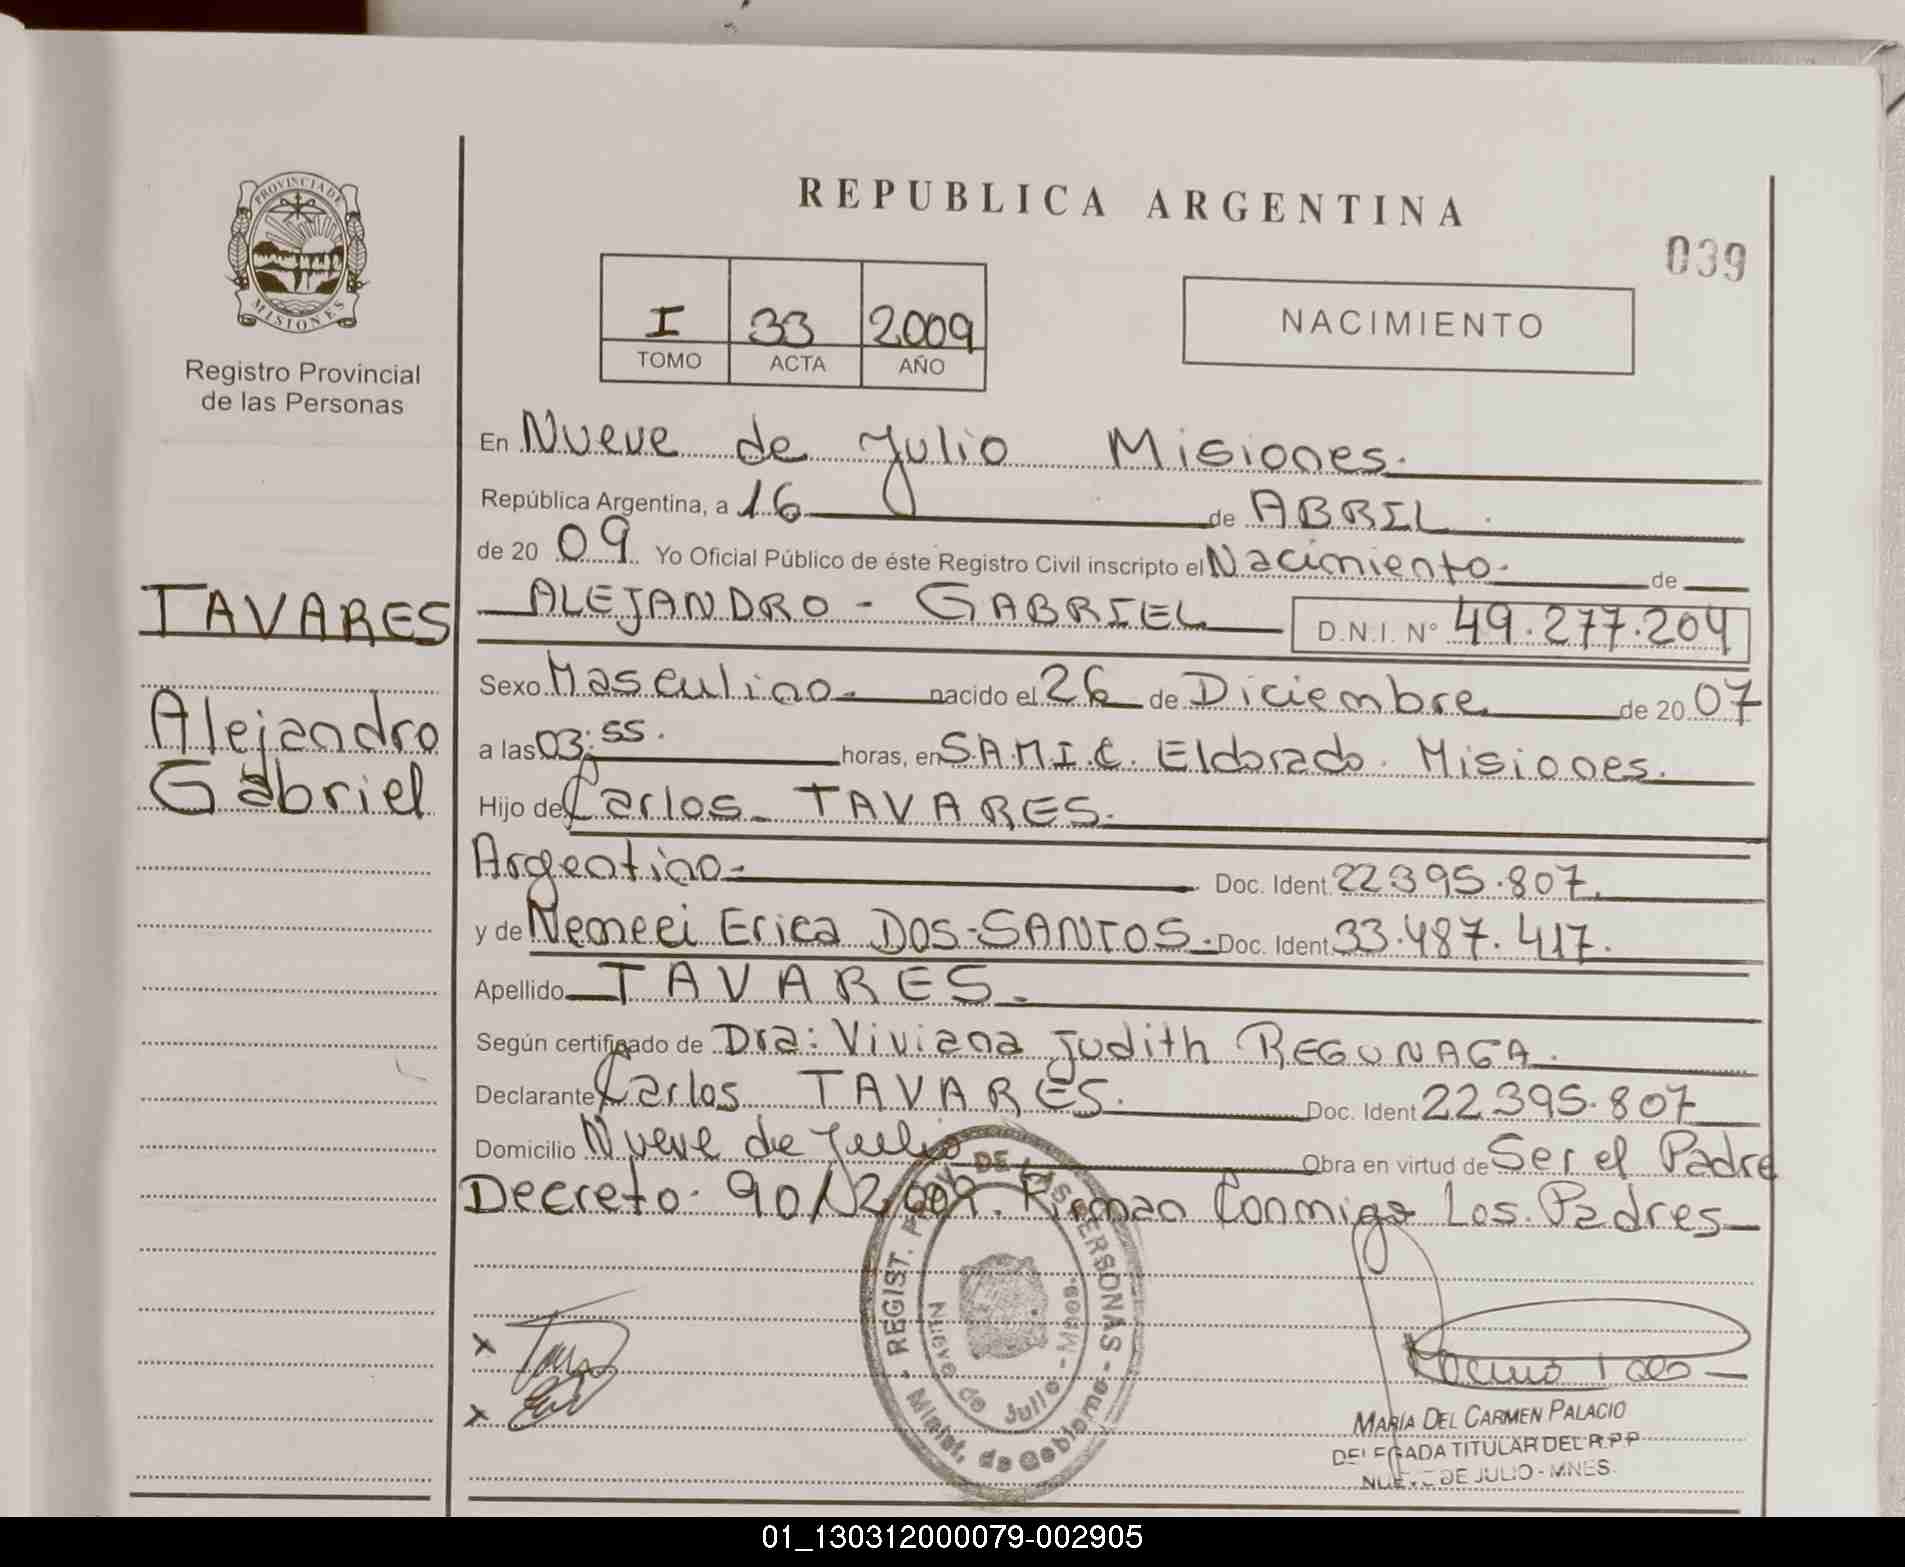 REPUBLICA ARGENTINA
039
PROVINCIA DE
MISIONES
Registro Provincial
de las Personas
I 33 2009
TOMO ACTA AÑO
NACIMIENTO
En Nueve de Julio Misiones.
República Argentina, a 16 de ABRIL
de 20 09 Yo Oficial Público de éste Registro Civil inscripto el Nacimiento. de
TAVARES
Alejandro
Gabriel
ALEJANDRO - GABRIEL D.N.I. Nº 49.277.204
Sexo Masculino. nacido el 26 de Diciembre de 20 07
a las 03:55. horas, en S.A.M.I.C. Eldorado. Misiones.
Hijo de Carlos TAVARES.
Argentino Doc. Ident. 22395.807.
y de Erica DOS-SANTOS. Doc. Ident. 33.487.417.
Apellido TAVARES.
Según certificado de Dra: Viviana Judith REGUNAGA.
Declarante Carlos TAVARES. Doc. Ident 22395.807
Domicilio Nueve de Julio Obra en virtud de Ser el Padre
Decreto. 90/2.009. Firman Conmigo Los. Padres
REGIST. PROV. DE LAS PERSONAS
Nueve de Julio - Mnes.
Minist. de Gobierno
x
x
MARÍA DEL CARMEN PALACIO
DELEGADA TITULAR DEL R.P.P
NUEVE DE JULIO - MNES.
01_130312000079-002905